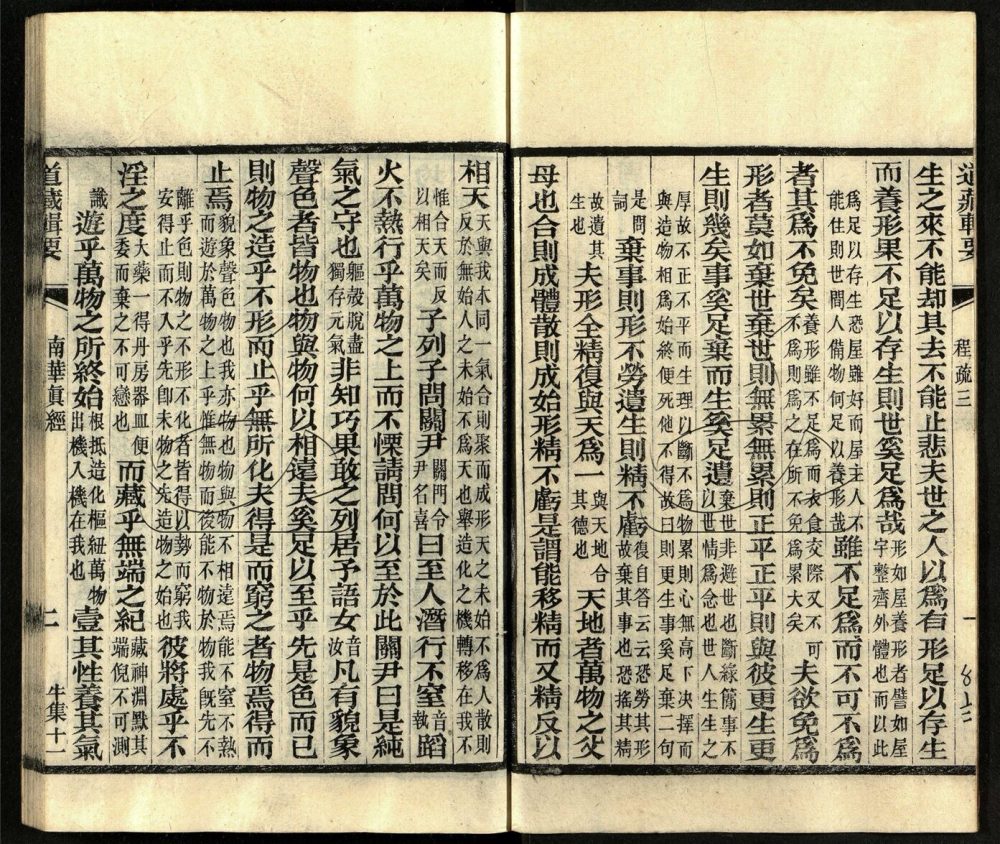 道藏輯要 程疏三 一
生之來不能却其去不能止悲夫世之人以爲有形足以存生
而養形果不足以存生則世奚足爲哉形如屋養形者譬如屋字整齊外體也而以此
爲足以存生恐屋雖好而屋主人不能住則世間人備物何足以養形哉雖不足爲而不可不爲
者其爲不免矣養形雖不足爲而衣食交際又不可不爲則爲之在所不免爲累大矣夫欲免爲
形者莫如棄世棄世則無累無累則正平正平則與彼更生更
生則幾矣事奚足棄而生奚足遺棄世非避世也斷緣簡事不以世情爲念也世人生生之
厚故不正不平而生理以斷不爲物累則心無高下決擇而與造物相爲始終便死他不得故曰則更生事奚足棄二句
是問詞棄事則形不勞遺生則精不虧復自答云云恐勞其形故棄其事也恐搖其精
故遺其生也夫形全精復與天爲一與天地合其德也天地者萬物之父
母也合則成體散則成始形精不虧是謂能移精而又精反以
相天天與我本同一氣合則聚而成形天之未始不爲人散則反於無始人之未始不爲天也舉造化之機轉移在我不
惟合天而反以相天矣子列子問關尹關門令尹名喜曰至人潛行不窒音執蹈
火不熱行乎萬物之上而不慄請問何以至於此關尹曰是純
氣之守也軀殼脫盡獨存元氣非知巧果敢之列居予語女音汝凡有貌象
聲色者皆物也物與物何以相遠夫奚足以至乎先是色而已
則物之造乎不形而止乎無所化夫得是而窮之者物焉得而
止焉貌象聲色物也我亦物也物與物不相遠焉能不窒不熱而遊於萬物之上乎惟無物而後能不物於物我既先不
離乎色則物之不形不化者皆得以勢而窮我安得止而不入乎先卽未物之先造物之始也彼將處乎不
淫之度大藥一得丹房器皿便委而棄之不可戀也而藏乎無端之紀藏神淵默其端倪不可測
識遊乎萬物之所終始根柢造化樞紐萬物出機入機在我也壹其性養其氣
道藏輯要 南華眞經 二 牛集十一